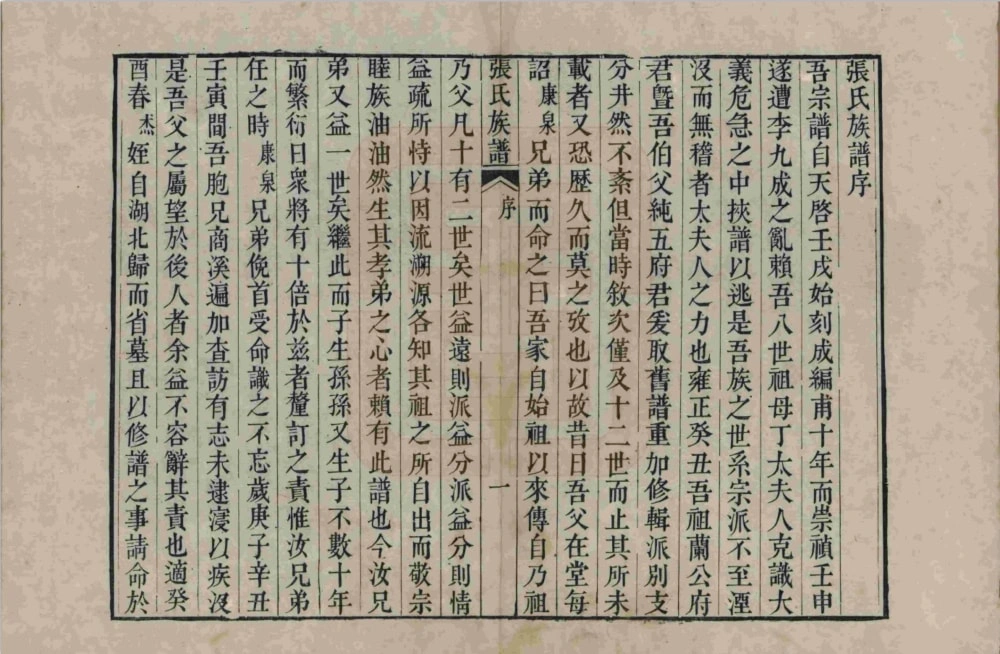 張氏族譜序
吾宗譜自天啓壬戌始刻成編甫十年而崇禎壬申
遂遭李九成之亂賴吾八世祖母丁太夫人克識大
義危急之中挾譜以逃是吾族之世系宗派不至湮
沒而無稽者太夫人之力也雍正癸丑吾祖蘭公府
君曁吾伯父純五府君爰取舊譜重加修輯派別支
分井然不紊但當時敘次僅及十二世而止其所未
載者又恐歷久而莫之攷也以故昔日吾父在堂每
詔康泉兄弟而命之曰吾家自始祖以來傳自乃祖
張氏族譜 序 一
乃父凡十有二世矣世益遠則派益分派益分則情
益疏所恃以因流溯源各知其祖之所自出而敬宗
睦族油油然生其孝弟之心者賴有此譜也今汝兄
弟又益一世矣繼此而子生孫孫又生子不數十年
而繁衍日衆將有十倍於兹者釐訂之責惟汝兄弟
任之時康泉兄弟俛首受命識之不忘歲庚子辛丑
壬寅間吾胞兄商溪遍加查訪有志未逮寖以疾沒
是吾父之屬望於後人者余益不容辭其責也適癸
酉春杰姪自湖北歸而省墓且以修譜之事請命於